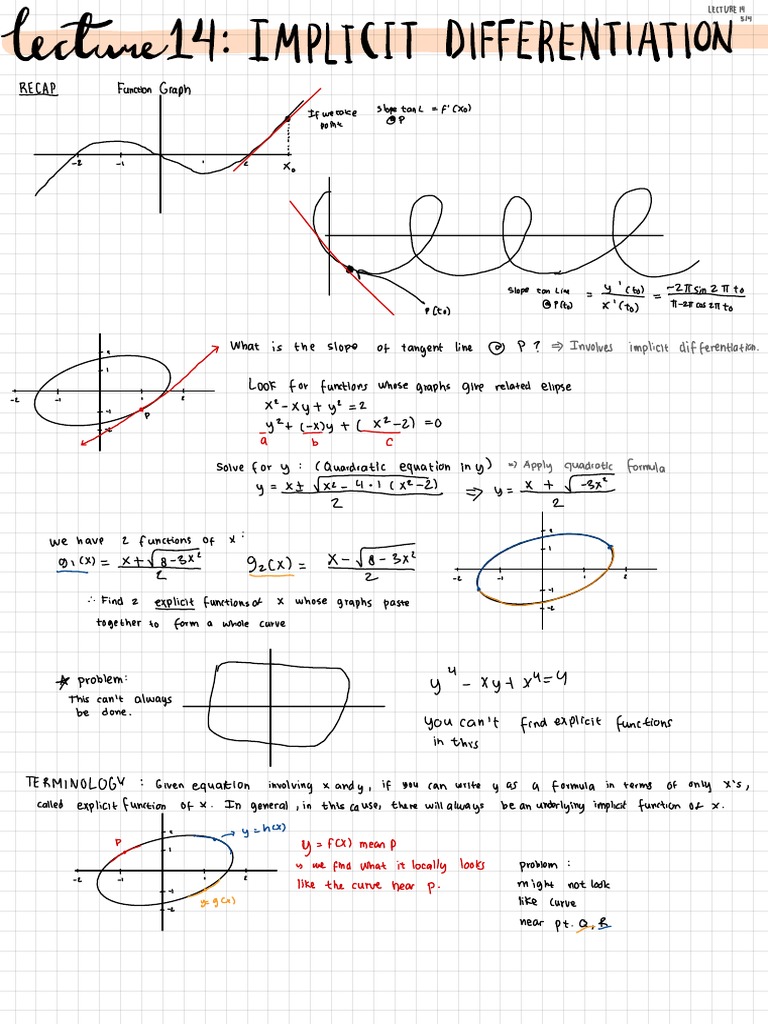 LECTURE 14
5/4
lecture 14: IMPLICIT DIFFERENTIATION
RECAP
Function Graph
If we take point
slope tan L = f'(x₀)
@ P
-2 -1 1 2 x₀
P(t₀)
slope tan line @ P(t₀) = y'(t₀)/x'(t₀) = -2π sin 2π t₀/π-2π cos 2π t₀
What is the slope of tangent line @ P? ⇒ Involves implicit differentiation.
-2 -1 1 2
1
-1
-2
P
Look for functions whose graphs give related elipse
x² - xy + y² = 2
y² + (-x)y + (x²-2) = 0
a b c
Solve for y: (Quadratic equation in y) ⇒ Apply quadratic formula
y = x ± √x² - 4·1 (x²-2)/2 ⇒ y = x + √-3x²/2
we have 2 functions of x:
g₁(x) = x+√8-3x²/2
g₂(x) = x-√8-3x²/2
-2 -1 1 2
1
-1
-2
∴ Find 2 explicit functions of x whose graphs paste
together to form a whole curve
☆ problem:
This can't always
be done.
y⁴ - xy + x⁴ = 4
you can't find explicit functions
in this
TERMINOLOGY: Given equation involving x and y, if you can write y as a formula in terms of only x's,
called explicit function of x. In general, in this cause, there will always be an underlying implicit function of x.
P
y = h(x)
-2 -1 1 2
1
-1
-2
y = g(x)
y = f(x) mean p
↳ we find what it locally looks
like the curve near p.
problem:
might not look
like curve
near pt. Q, R